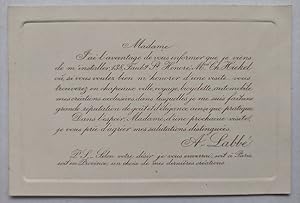 Madame
J'ai l'avantage de vous informer que je viens
de m'installer, 158, Faubg St Honoré, Mon Ch. Hickel,
où, si vous voulez bien m'honorer d'une visite, vous
trouverez en chapeaux ville, voyage, bicyclette, automobile
mes créations exclusives dans lesquelles je me suis fait une
grande réputation de goût et d'élégance aussi que pratique.
Dans l'espoir, Madame, d'une prochaine visite,
je vous prie d'agréer mes salutations distinguées.
A. Labbé
P.S. Selon votre désir je vous enverrai, soit à Paris,
soit en Province, un choix de mes dernières créations